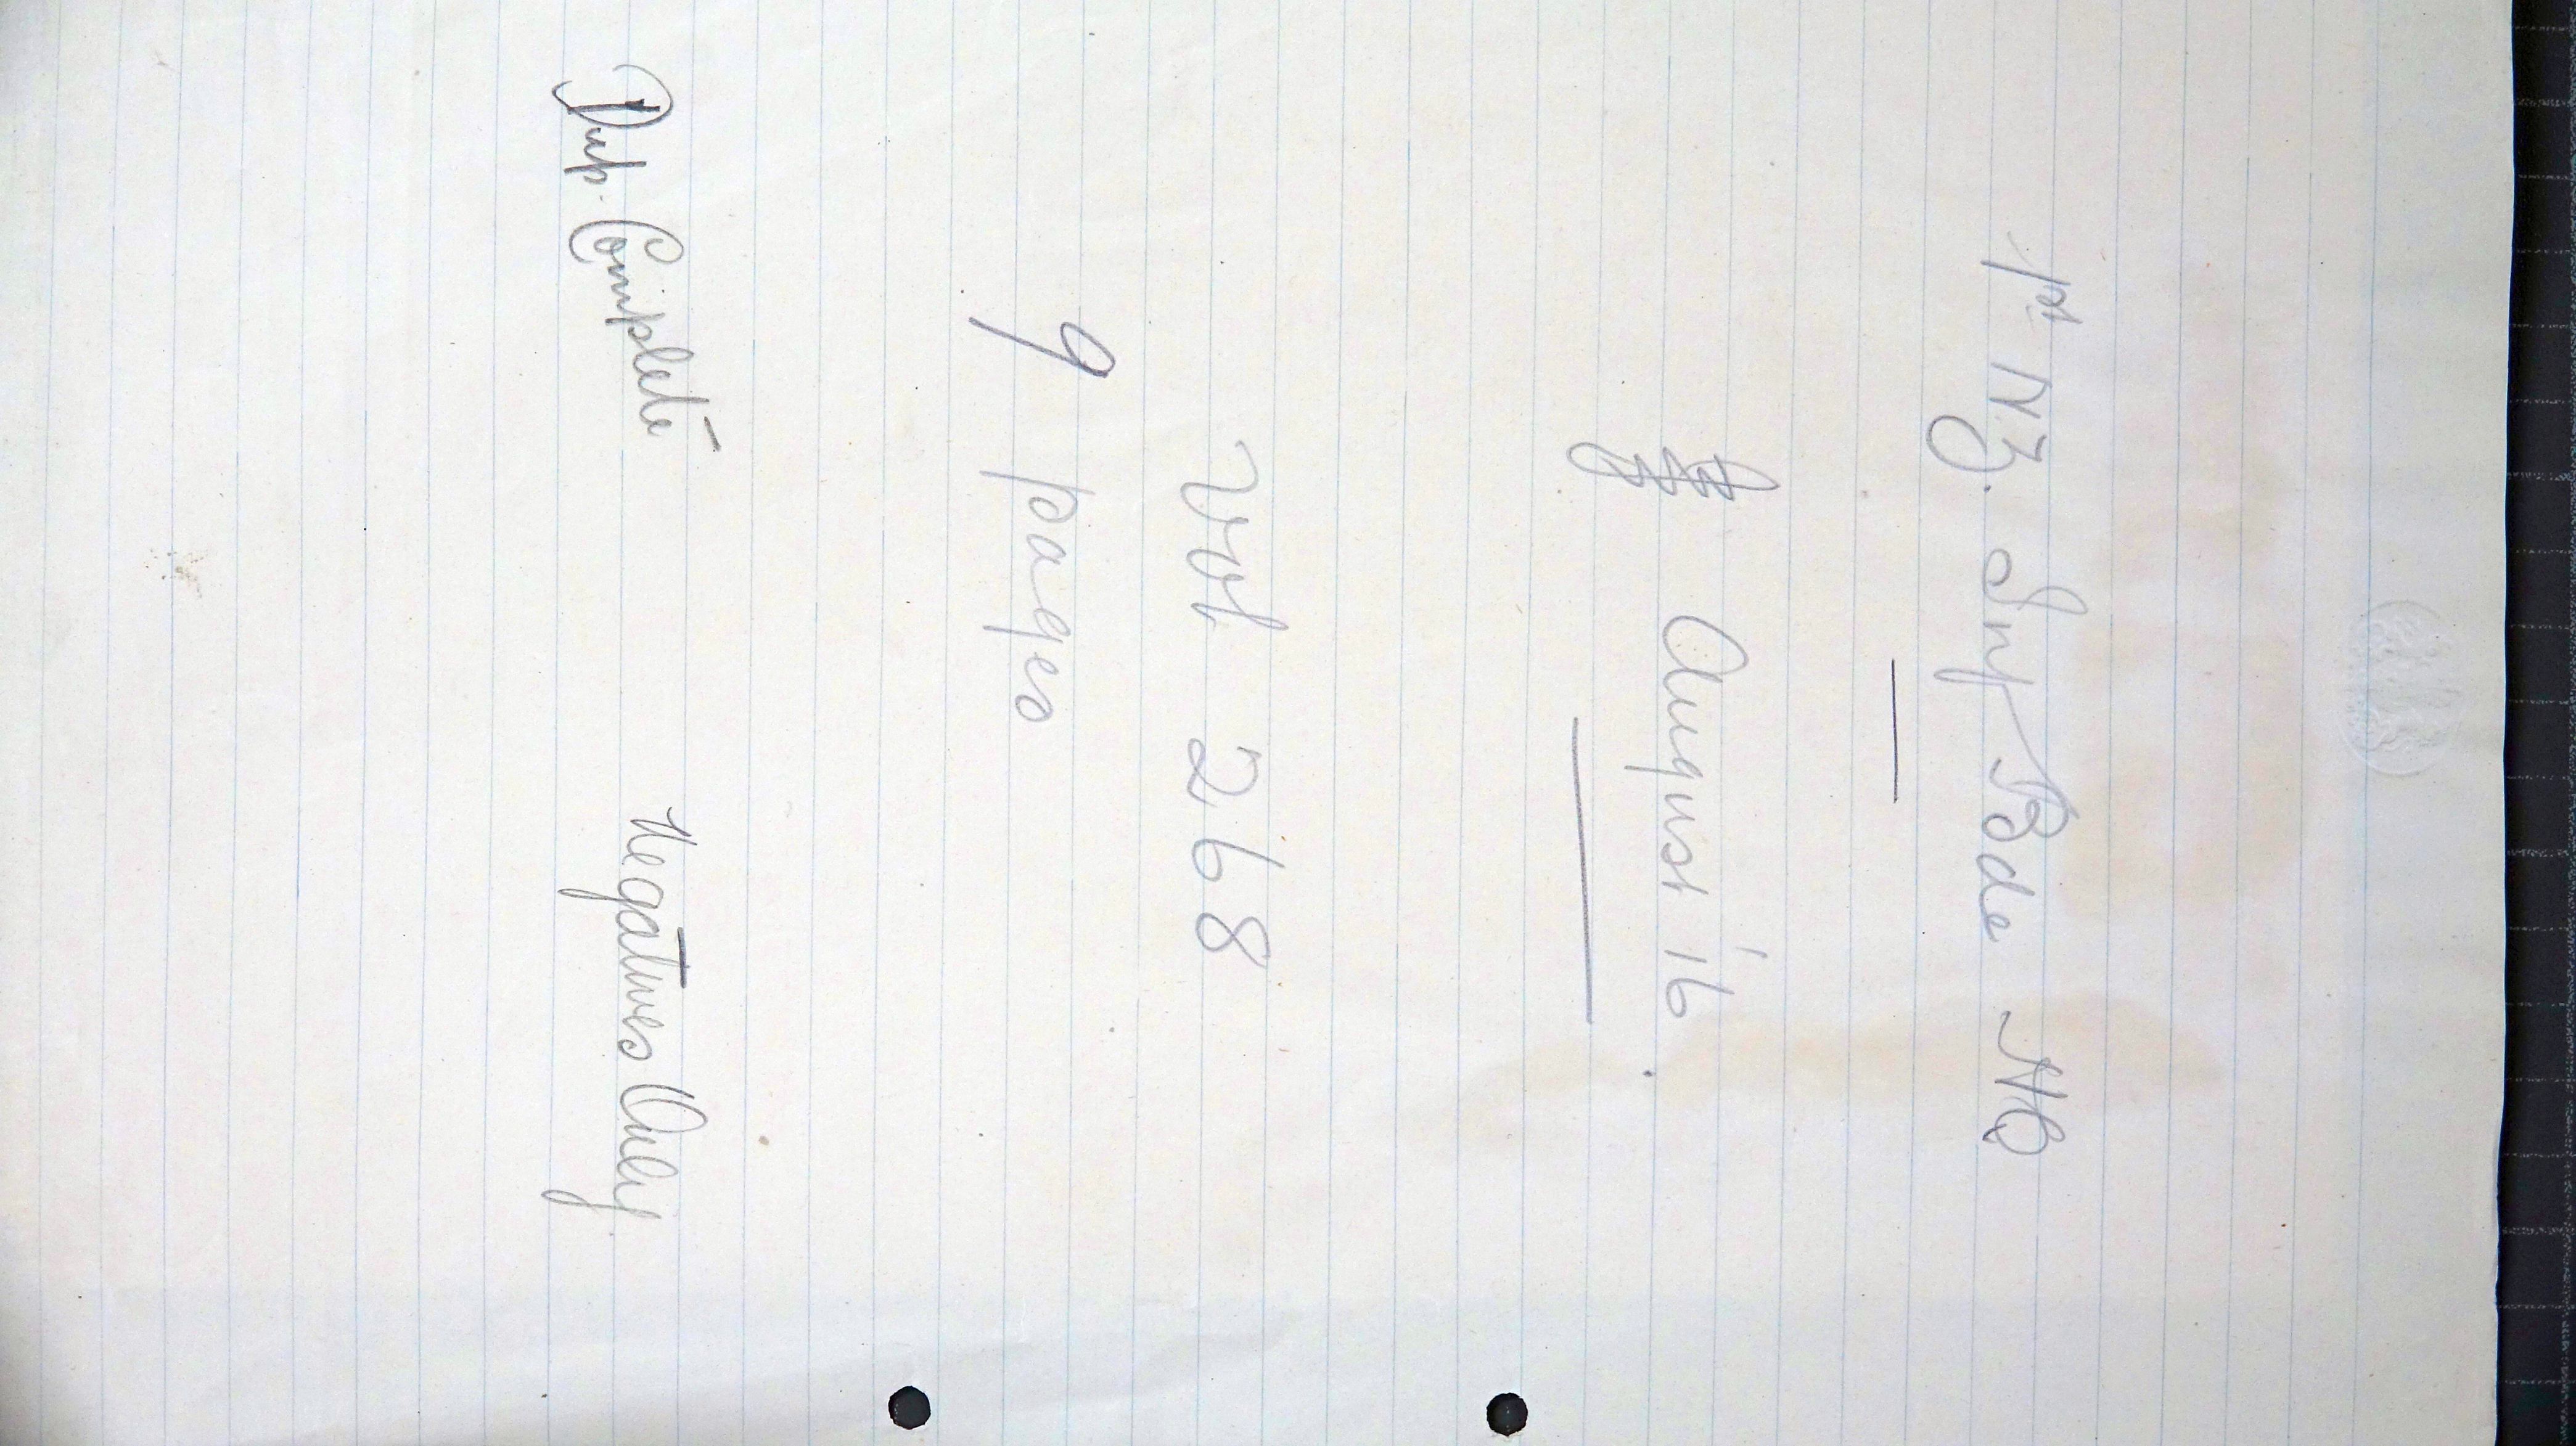 1st N.Z. Inf Bde HQ
August '16
Vol 268
9 pages
Dup. Complete Negatives Only